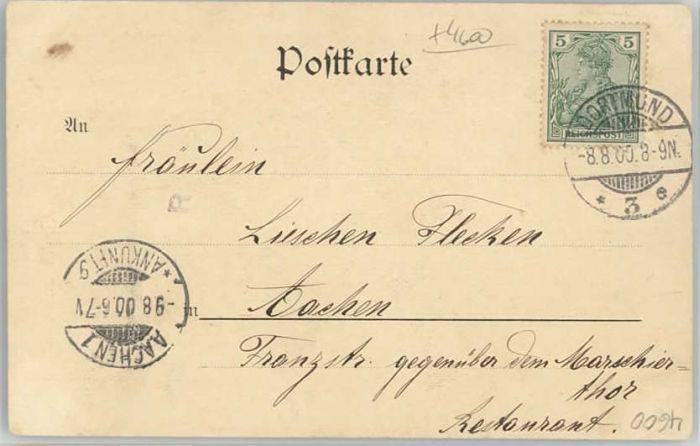 +4600
Postkarte
5 5
REICHSPOST
DORTMUND
-8.8.00.8-9N.
* 3 e
An
Fräulein
R
Lieschen Flecken
in Aachen
Franzstr. gegenüber dem Marschier-
thor
Restaurant.
*ANKUNFT.9
-9.8.00.6-7V
AACHEN 1
4600